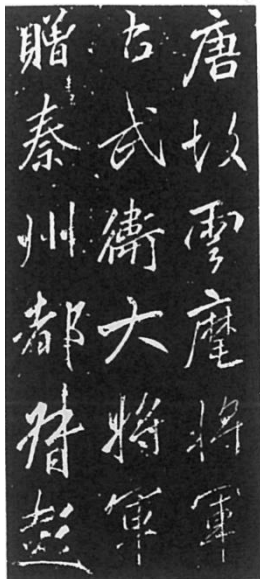 唐故雲麾將軍
右武衛大將軍
贈秦州都督彭